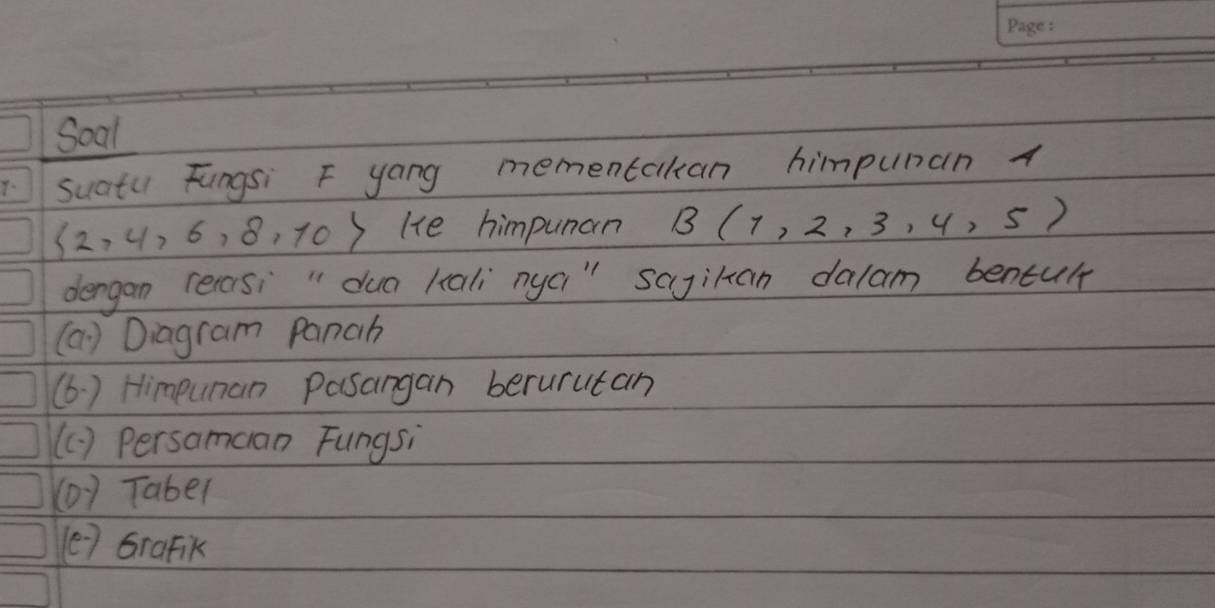 Page:
Soal
1. Suatu Fungsi F yang mementakan himpunan A
{2, 4, 6, 8, 10} ke himpunan B (1, 2, 3, 4, 5)
dengan rerasi "dua kali nya" sajikan dalam bentuk
(a.) Diagram Panah
(b.) Himpunan Pasangan berurutan
(c.) Persamaan Fungsi
(D.) Tabel
(e.) Grafik